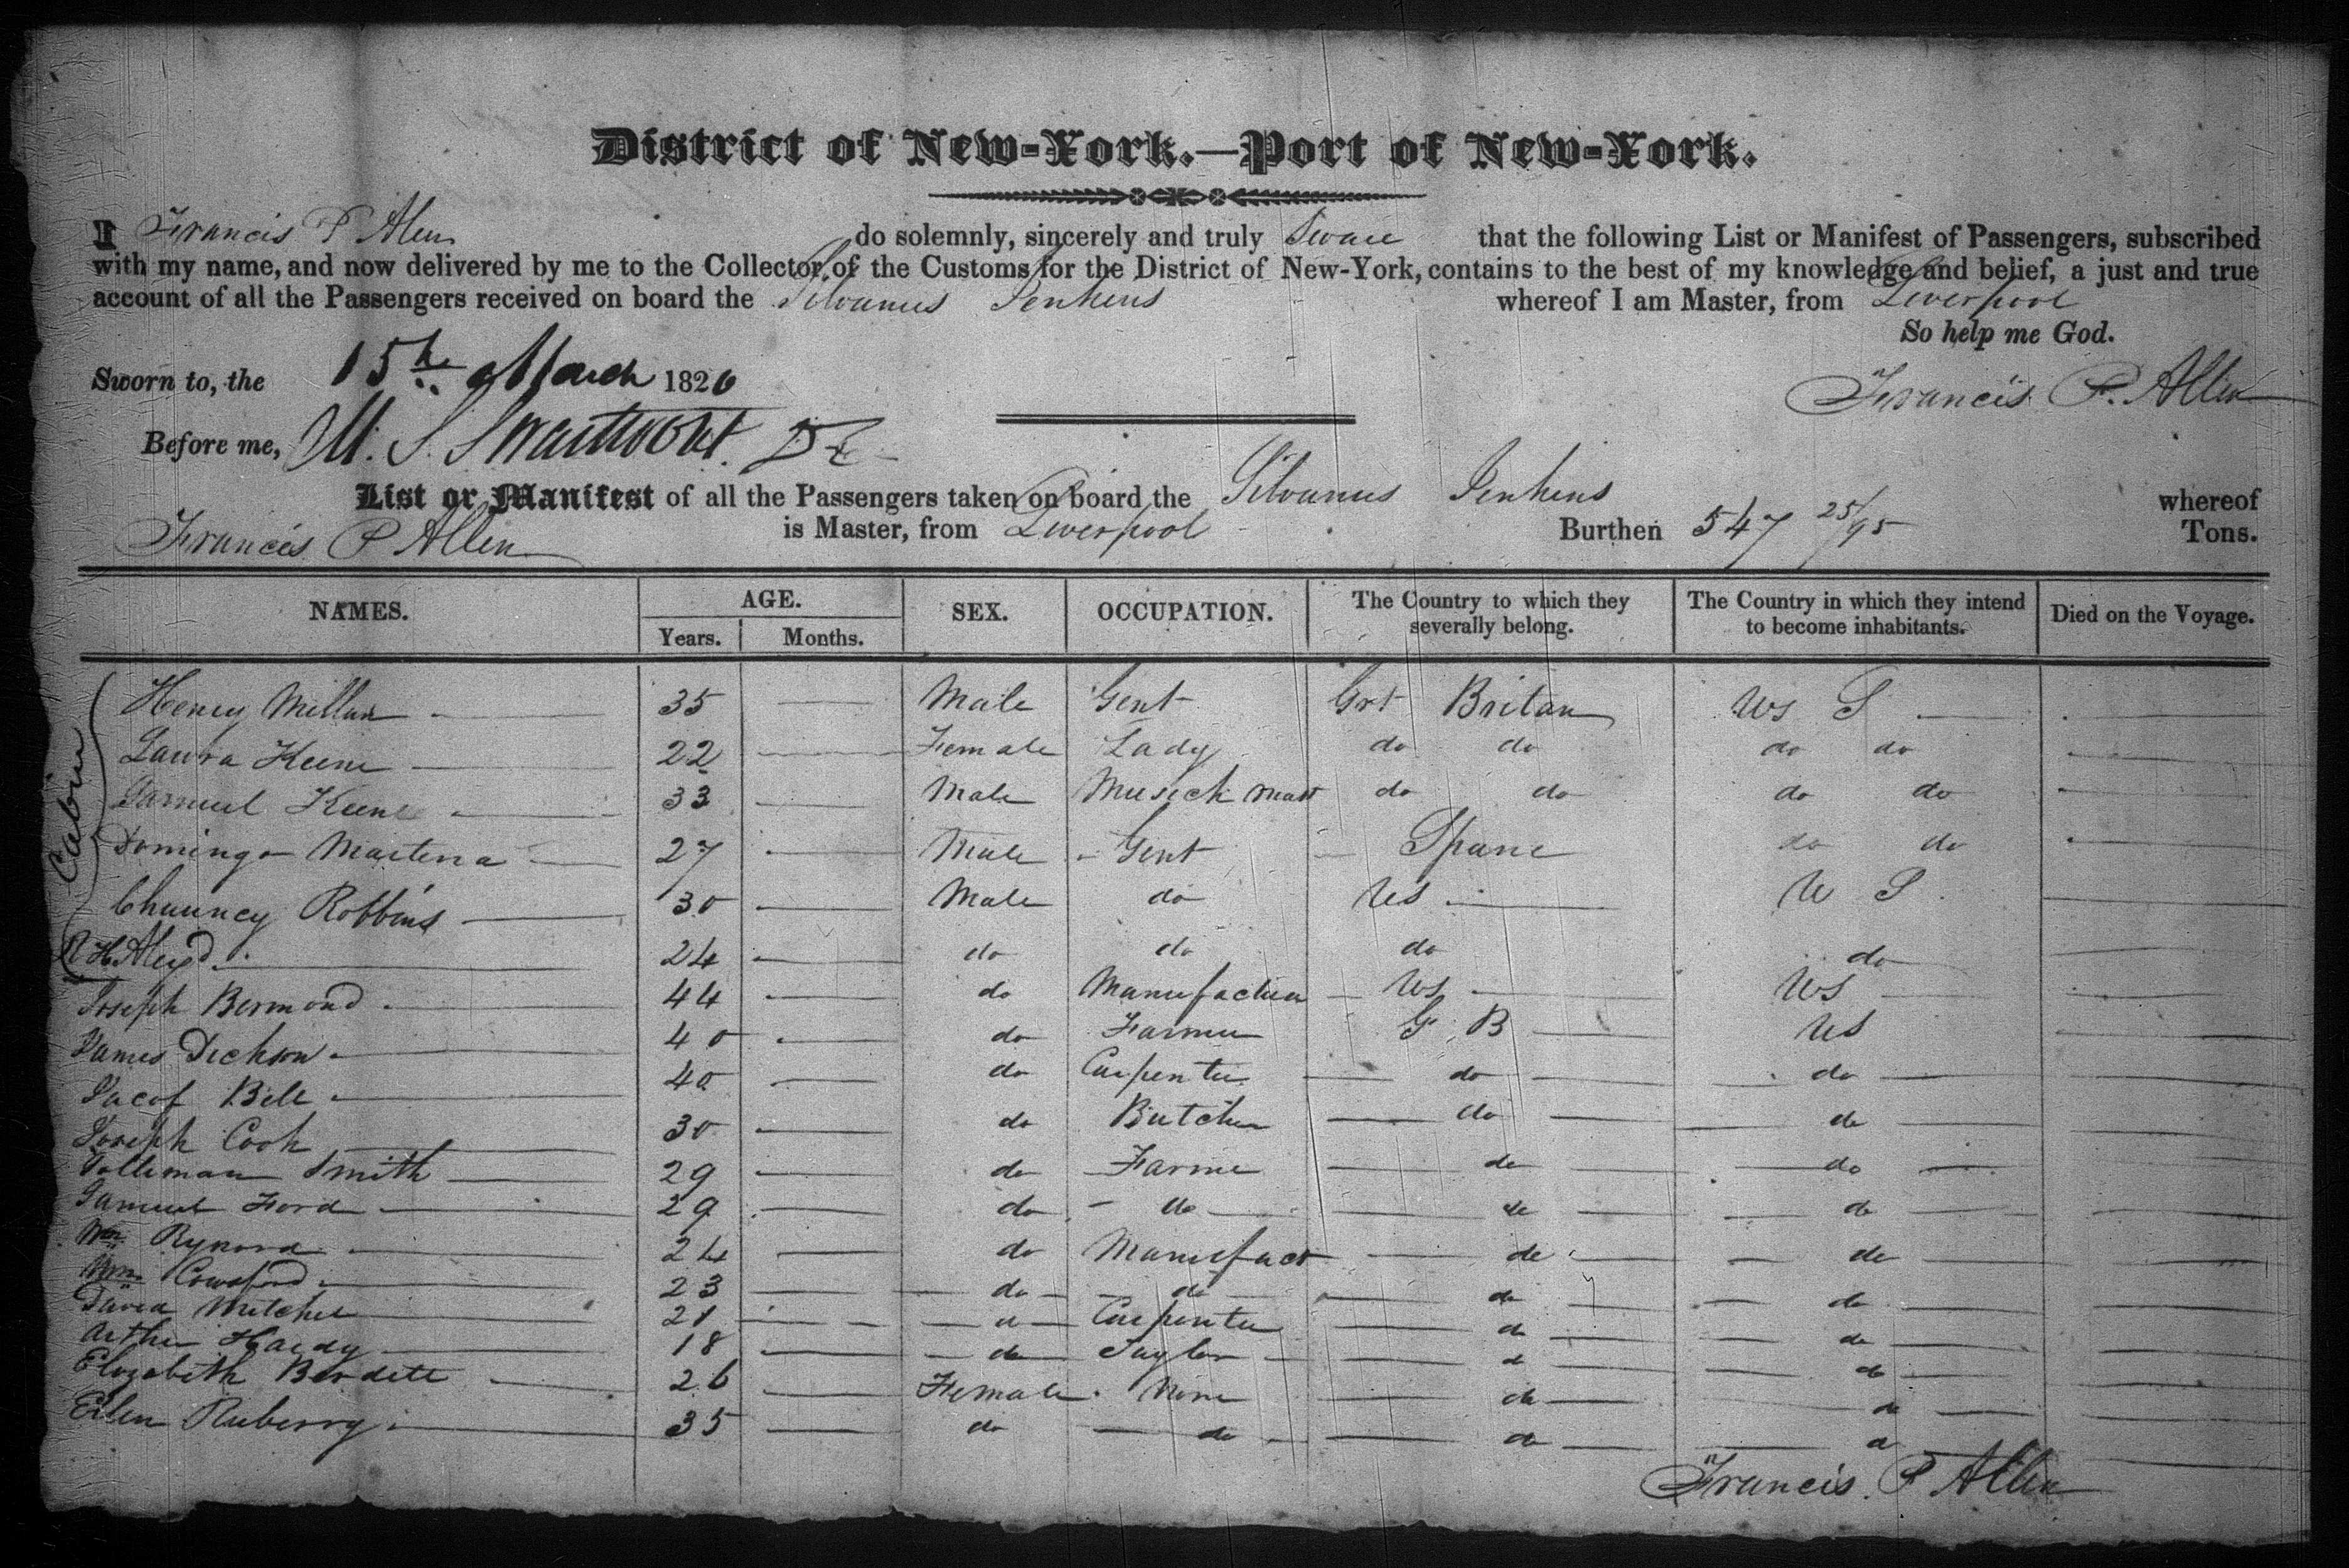 District of New-York.—Port of New-York.
I Francis P Allen do solemnly, sincerely and truly Sware that the following List or Manifest of Passengers, subscribed
with my name, and now delivered by me to the Collector of the Customs for the District of New-York, contains to the best of my knowledge and belief, a just and true
account of all the Passengers received on board the Silvanus Jenkins whereof I am Master, from Liverpool
So help me God.
Sworn to, the 15th March 1826
Francis P. Allen
Before me, M. S. Swartwout
List or Manifest of all the Passengers taken on board the Silvanus Jenkins whereof
Francis P Allen is Master, from Liverpool Burthen 547 25/95 Tons.
NAMES. AGE. SEX. OCCUPATION. The Country to which they severally belong. The Country in which they intend to become inhabitants. Died on the Voyage.
Years. Months.
Cabin
Henry Millan 35 Male Gent Grt Britan Us S
Laura Keene 22 Female Lady do do do do
Samuel Keene 33 Male Musick Mast do do do do
Domingo Martena 27 Male Gent Spane do do
Chauncy Robbins 30 Male do US U S
24 do do do do
Joseph Bermond 44 do Manufactuer US US
James Dickson 40 do Farmer G B US
Jacob Bell 40 do Carpenter do do
Joseph Cook 30 do Butcher do do
Tolleman Smith 29 do Farmer do do
Samuel Ford 29 do do do do
Wm Rynord 24 do Manufact do do
Wm Crawford 23 do do do do
David Mitchel 21 do Carpenter do do
Arthur Hardy 18 do Taylor do do
Elizabeth Berdett 26 Female None do do
Ellen Ruberry 35 do do do do
Francis P Allen